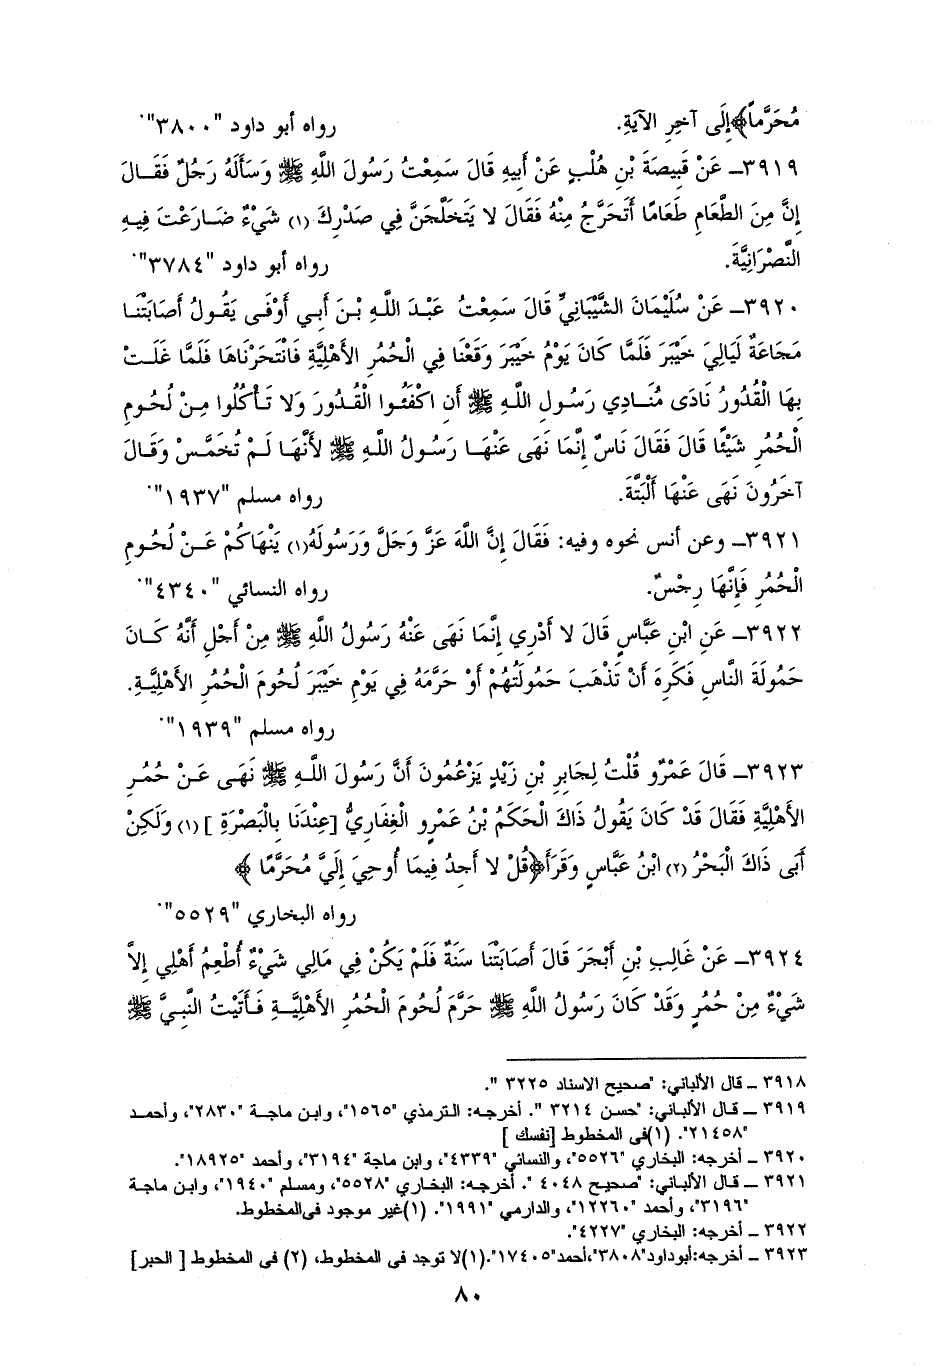 مُحَرَّماً﴾إِلَى آخِرِ الآيَةِ. رواه أبو داود "٣٨٠٠".
٣٩١٩ـ عَنْ قَبِيصَةَ بْنِ هُلْبٍ عَنْ أَبِيهِ قَالَ سَمِعْتُ رَسُولَ اللَّهِ ﷺ وَسَأَلَهُ رَجُلٌ فَقَالَ
إِنَّ مِنَ الطَّعَامِ طَعَامًا أَتَحَرَّجُ مِنْهُ فَقَالَ لا يَتَخَلَّجَنَّ فِي صَدْرِكَ (١) شَيْءٌ ضَارَعْتَ فِيهِ
النَّصْرَانِيَّةَ. رواه أبو داود "٣٧٨٤".
٣٩٢٠ـ عَنْ سُلَيْمَانَ الشَّيْبَانِيِّ قَالَ سَمِعْتُ عَبْدَ اللَّهِ بْنَ أَبِي أَوْفَى يَقُولُ أَصَابَتْنَا
مَجَاعَةٌ لَيَالِيَ خَيْبَرَ فَلَمَّا كَانَ يَوْمُ خَيْبَرَ وَقَعْنَا فِي الْحُمُرِ الأَهْلِيَّةِ فَانْتَحَرْنَاهَا فَلَمَّا غَلَتْ
بِهَا الْقُدُورُ نَادَى مُنَادِي رَسُولِ اللَّهِ ﷺ أَنِ اكْفَئُوا الْقُدُورَ وَلا تَأْكُلُوا مِنْ لُحُومِ
الْحُمُرِ شَيْئًا قَالَ فَقَالَ نَاسٌ إِنَّمَا نَهَى عَنْهَا رَسُولُ اللَّهِ ﷺ لأَنَّهَا لَمْ تُخَمَّسْ وَقَالَ
آخَرُونَ نَهَى عَنْهَا أَلْبَتَّةَ. رواه مسلم "١٩٣٧".
٣٩٢١ـ وعن أنس نحوه وفيه: فَقَالَ إِنَّ اللَّهَ عَزَّ وَجَلَّ وَرَسُولَهُ(١) يَنْهَاكُمْ عَنْ لُحُومِ
الْحُمُرِ فَإِنَّهَا رِجْسٌ. رواه النسائي "٤٣٤٠".
٣٩٢٢ـ عَنِ ابْنِ عَبَّاسٍ قَالَ لا أَدْرِي إِنَّمَا نَهَى عَنْهُ رَسُولُ اللَّهِ ﷺ مِنْ أَجْلِ أَنَّهُ كَانَ
حَمُولَةَ النَّاسِ فَكَرِهَ أَنْ تَذْهَبَ حَمُولَتُهُمْ أَوْ حَرَّمَهُ فِي يَوْمِ خَيْبَرَ لُحُومَ الْحُمُرِ الأَهْلِيَّةِ.
رواه مسلم "١٩٣٩".
٣٩٢٣ـ قَالَ عَمْرٌو قُلْتُ لِجَابِرِ بْنِ زَيْدٍ يَزْعُمُونَ أَنَّ رَسُولَ اللَّهِ ﷺ نَهَى عَنْ حُمُرِ
الأَهْلِيَّةِ فَقَالَ قَدْ كَانَ يَقُولُ ذَاكَ الْحَكَمُ بْنُ عَمْرٍو الْغِفَارِيُّ [عِنْدَنَا بِالْبَصْرَةِ ] (١) وَلَكِنْ
أَبَى ذَاكَ الْبَحْرُ (٢) ابْنُ عَبَّاسٍ وَقَرَأَ﴿قُلْ لا أَجِدُ فِيمَا أُوحِيَ إِلَيَّ مُحَرَّمًا ﴾
رواه البخاري "٥٥٢٩".
٣٩٢٤ـ عَنْ غَالِبِ بْنِ أَبْجَرَ قَالَ أَصَابَتْنَا سَنَةٌ فَلَمْ يَكُنْ فِي مَالِي شَيْءٌ أُطْعِمُ أَهْلِي إِلاَّ
شَيْءٌ مِنْ حُمُرٍ وَقَدْ كَانَ رَسُولُ اللَّهِ ﷺ حَرَّمَ لُحُومَ الْحُمُرِ الأَهْلِيَّةِ فَأَتَيْتُ النَّبِيَّ ﷺ
٣٩١٨ ـ قال الألباني: "صحيح الاسناد ٣٢٢٥ ".
٣٩١٩ ـ قال الألباني: "حسن ٣٢١٤ ". أخرجه: الترمذي "١٥٦٥"، وابن ماجة "٢٨٣٠"، وأحمد
"٢١٤٥٨". (١)فى المخطوط [نفسك ]
٣٩٢٠ ـ أخرجه: البخاري "٥٥٢٦"، والنسائي "٤٣٣٩"، وابن ماجة "٣١٩٤"، وأحمد "١٨٩٢٥".
٣٩٢١ ـ قال الألباني: "صحيح ٤٠٤٨ ". أخرجه: البخاري "٥٥٢٨"، ومسلم "١٩٤٠"، وابن ماجة
"٣١٩٦"، وأحمد "١٢٢٦٠"، والدارمي "١٩٩١". (١)غير موجود فى المخطوط.
٣٩٢٢ ـ أخرجه: البخاري "٤٢٢٧".
٣٩٢٣ ـ أخرجه:أبوداود"٣٨٠٨"،أحمد"١٧٤٠٥".(١)لا توجد فى المخطوط، (٢) فى المخطوط [ الحبر]
٨٠